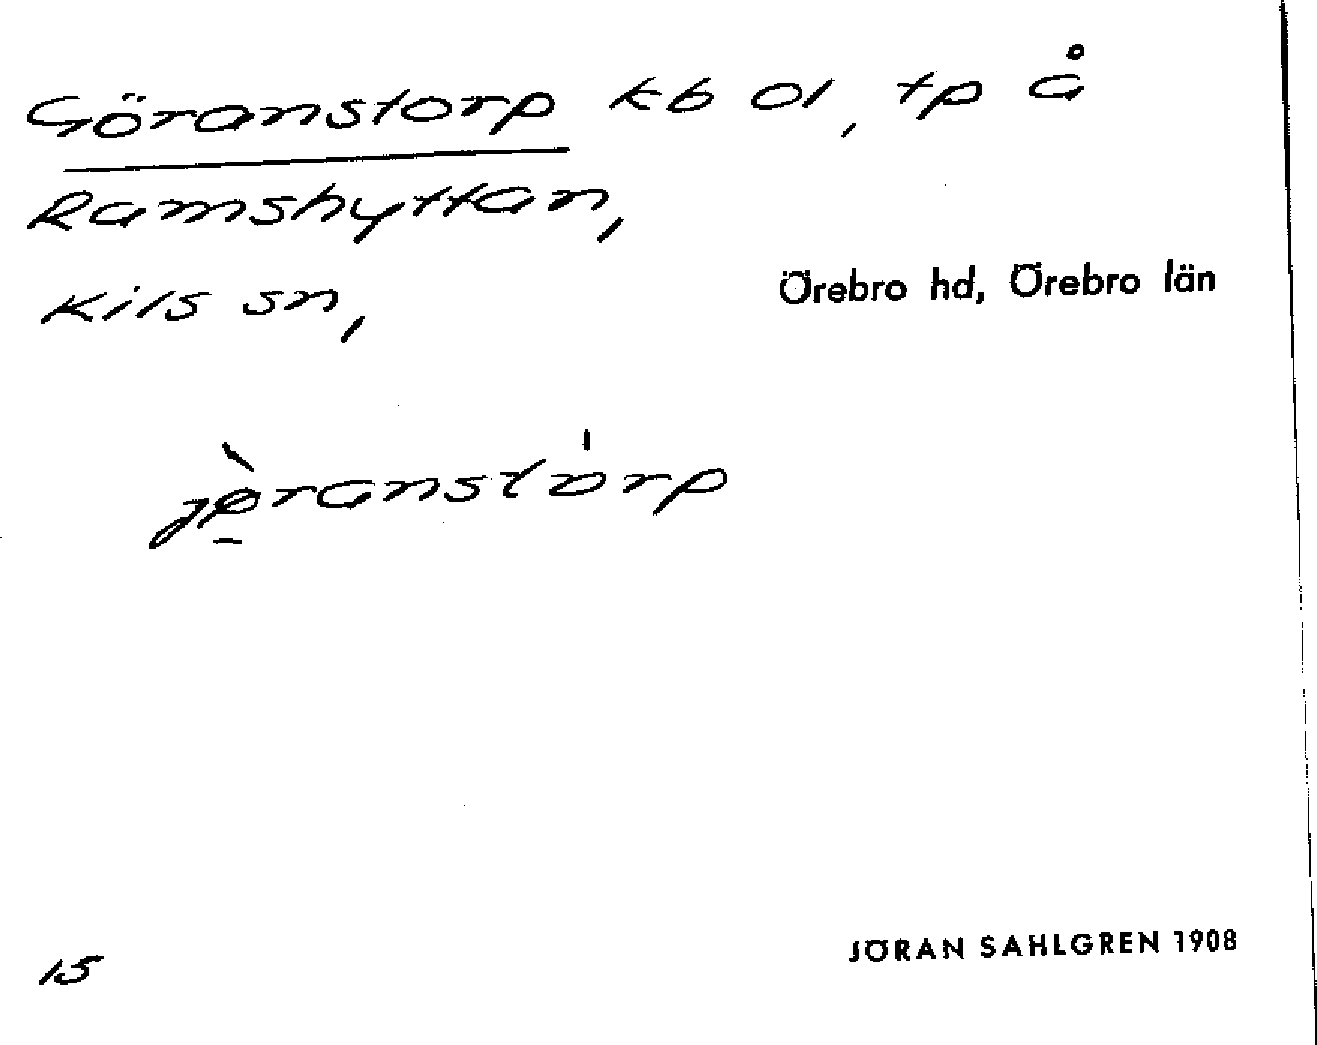 Göranstorp kb ol, tp å
Ramshyttan,
Kils sn, Örebro hd, Örebro län
jø̱̀ranstòrp
15 JÖRAN SAHLGREN 1908